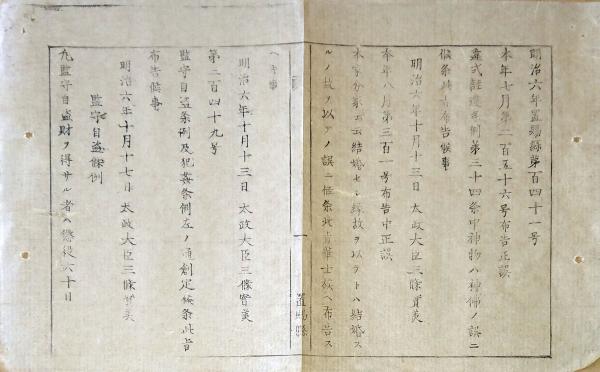 明治六年置賜縣第百四十一号
本年七月第二百五十六号布告正誤
違式註違条例第三十四条中神物ハ神佛ノ誤ニ
候条此旨布告候事
明治六年十月十三日 太政大臣三條實美
本年八月第三百一号布告中正誤
本家分第ニ云結婚セシ縁故ヲ以テトハ結婚ス
ルノ故ヲ以テノ誤ニ候条此旨華士族ヘ布告ス
ヘキ事
明治六年十月十三日 太政大臣三條實美
第三百四十九号
監守自盗条例及犯姦条例左ノ通創定候条此旨
布告候事
明治六年十月十七日 太政大臣三條實美
監守自盗條例
凡監守自盗財ヲ得サル者ハ懲役六十日
一
置賜縣